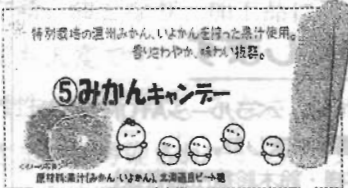 特別栽培の温州みかん、いよかんを搾った果汁使用。
香りさわやか、味わい抜群。
⑤みかんキャンデー
<イメージ写真>
原材料:果汁(みかん・いよかん)、北海道産ビート糖